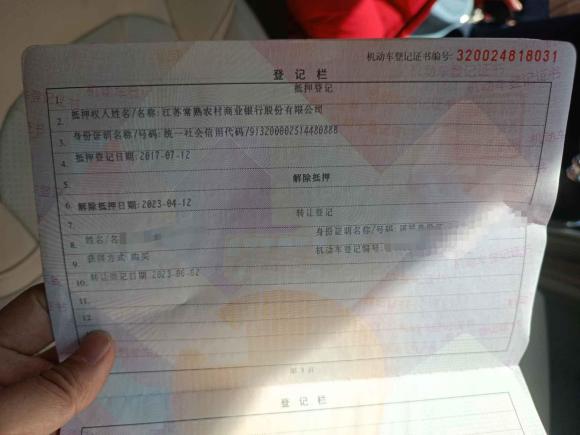 机动车登记证书编号: 320024818031
登记栏
1. 抵押登记
2. 抵押权人姓名/名称:江苏常熟农村商业银行股份有限公司
3. 身份证明名称/号码:统一社会信用代码/91320000251448088B
4. 抵押登记日期:2017-07-12
5. 解除抵押
6. 解除抵押日期:2023-04-12
7. 转让登记
8. 姓名/名 身份证明名称/号码
9. 获得方式:购买 机动车登记编号:
10. 转让登记日期:2023-06-02
11.
12.
登记栏